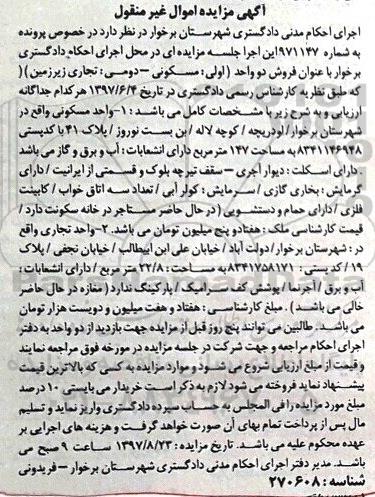 آگهی مزایده اموال غیر منقول
اجرای احکام مدنی دادگستری شهرستان برخوار در نظر دارد در خصوص پرونده
به شماره ۹۷۱۱۴۷ این اجرا جلسه مزایده ای در محل اجرای احکام دادگستری
برخوار با عنوان فروش دو واحد (اولی: مسکونی – دومی: تجاری زیرزمین) (
که طبق نظریه کارشناس رسمی دادگستری در تاریخ ۱۳۹۷/۶/۴ هرکدام جداگانه
ارزیابی و به شرح زیر با مشخصات کامل می باشد: ۱- واحد مسکونی واقع در
شهرستان برخوار/ اودریچه / کوچه لاله / بن بست نوروز / پلاک ۴۱ با کدپستی
۸۳۴۱۱۴۶۹۴۸ به مساحت ۱۴۷ متر مربع دارای انشعابات: آب و برق و گاز می باشد
. دارای اسکلت: دیوار آجری – سقف تیرچه بلوک و قسمتی از ایرانیت / دارای
گرمایش: بخاری گازی / سرمایش: کولر آبی / تعداد سه اتاق خواب / کابینت
فلزی / دارای حمام و دستشویی (در حال حاضر مستاجر در خانه سکونت دارد /
قیمت کارشناسی ملک: هفتاد و پنج میلیون تومان می باشد. ۲- واحد تجاری واقع
در: شهرستان برخوار/ دولت آباد / خیابان علی ابن ابیطالب / خیابان نجفی / پلاک
۱۹ / کد پستی: ۸۳۴۱۷۵۸۱۷۱ به مساحت: ۲۲/۸ متر مربع / دارای انشعابات:
آب و برق / آجرنما / پوشش کف سرامیک / پارکینگ ندارد (مغازه در حال حاضر
خالی می باشد). مبلغ کارشناسی: هفتاد و هفت میلیون و دویست هزار تومان
می باشد. طالبین می توانند پنج روز قبل از مزایده جهت بازدید از دو واحد به دفتر
اجرای احکام مراجعه و جهت شرکت در جلسه مزایده در مورخه فوق مراجعه نمایند
و قیمت از مبلغ ارزیابی شروع می شود و موارد مزایده به کسی که بالاترین قیمت
پیشنهاد نماید فروخته می شود لازم به ذکر است خریدار می بایستی ۱۰ درصد
مبلغ مورد مزایده را فی المجلس به حساب سپرده دادگستری واریز نماید و تسلیم
مال پس از پرداخت تمام بهای آن صورت خواهد گرفت و هزینه های اجرایی بر
عهده محکوم علیه می باشد. تاریخ مزایده: ۱۳۹۷/۸/۲۳ ساعت ۹ صبح می
باشد. مدیر دفتر اجرای احکام مدنی دادگستری شهرستان برخوار – فریدونی
شناسه: ۲۷۰۶۰۸